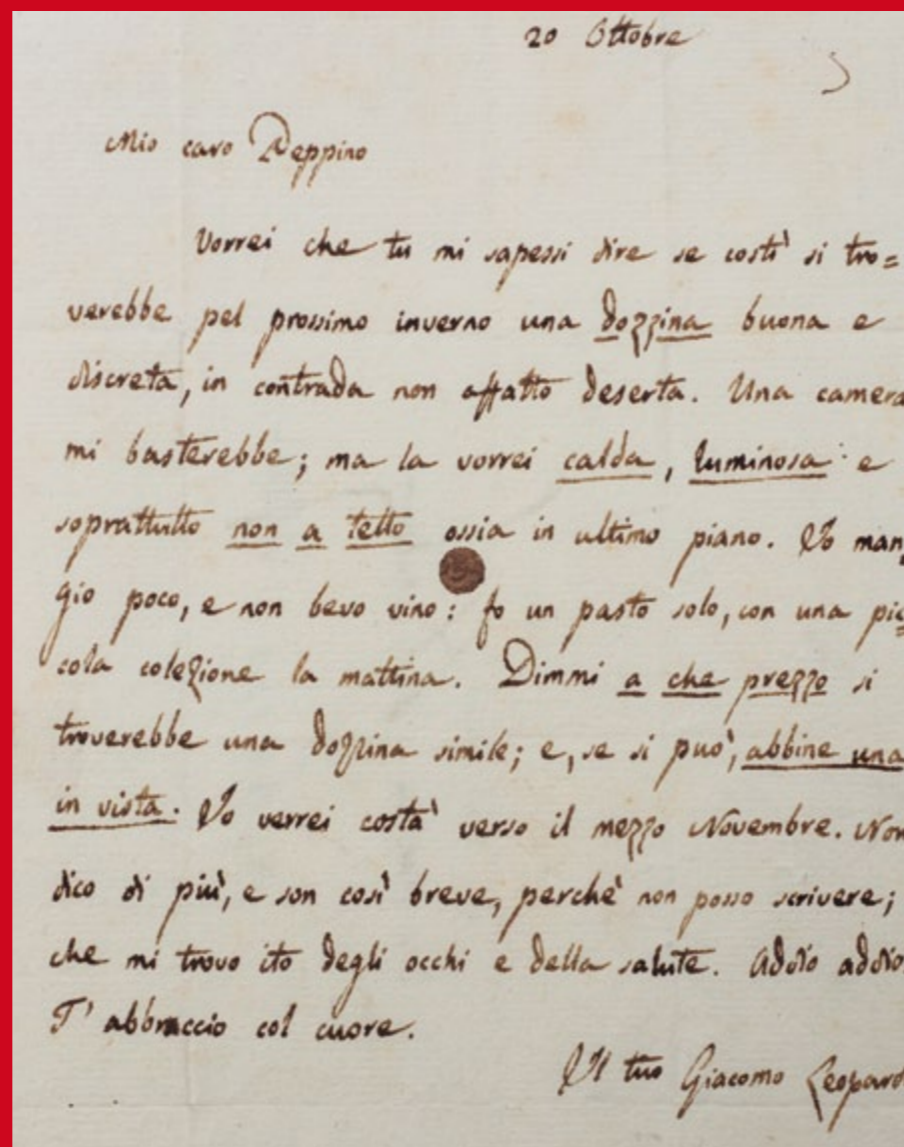 20 Ottobre
Mio caro Peppino
Vorrei che tu mi sapessi dire se costì si tro=
verebbe pel prossimo inverno una dozzina buona e
discreta, in contrada non affatto deserta. Una camera
mi basterebbe; ma la vorrei calda, luminosa e
soprattutto non a tetto ossia in ultimo piano. Io man
gio poco, e non bevo vino: fo un pasto solo, con una pic
cola colezione la mattina. Dimmi a che prezzo si
troverebbe una dozzina simile; e, se si può, abbine una
in vista. Io verrei costà verso il mezzo Novembre. Non
dico di più, e son così breve, perchè non posso scrivere;
che mi trovo ito degli occhi e della salute. Addio addio.
T' abbraccio col cuore.
Il tuo Giacomo Leopard